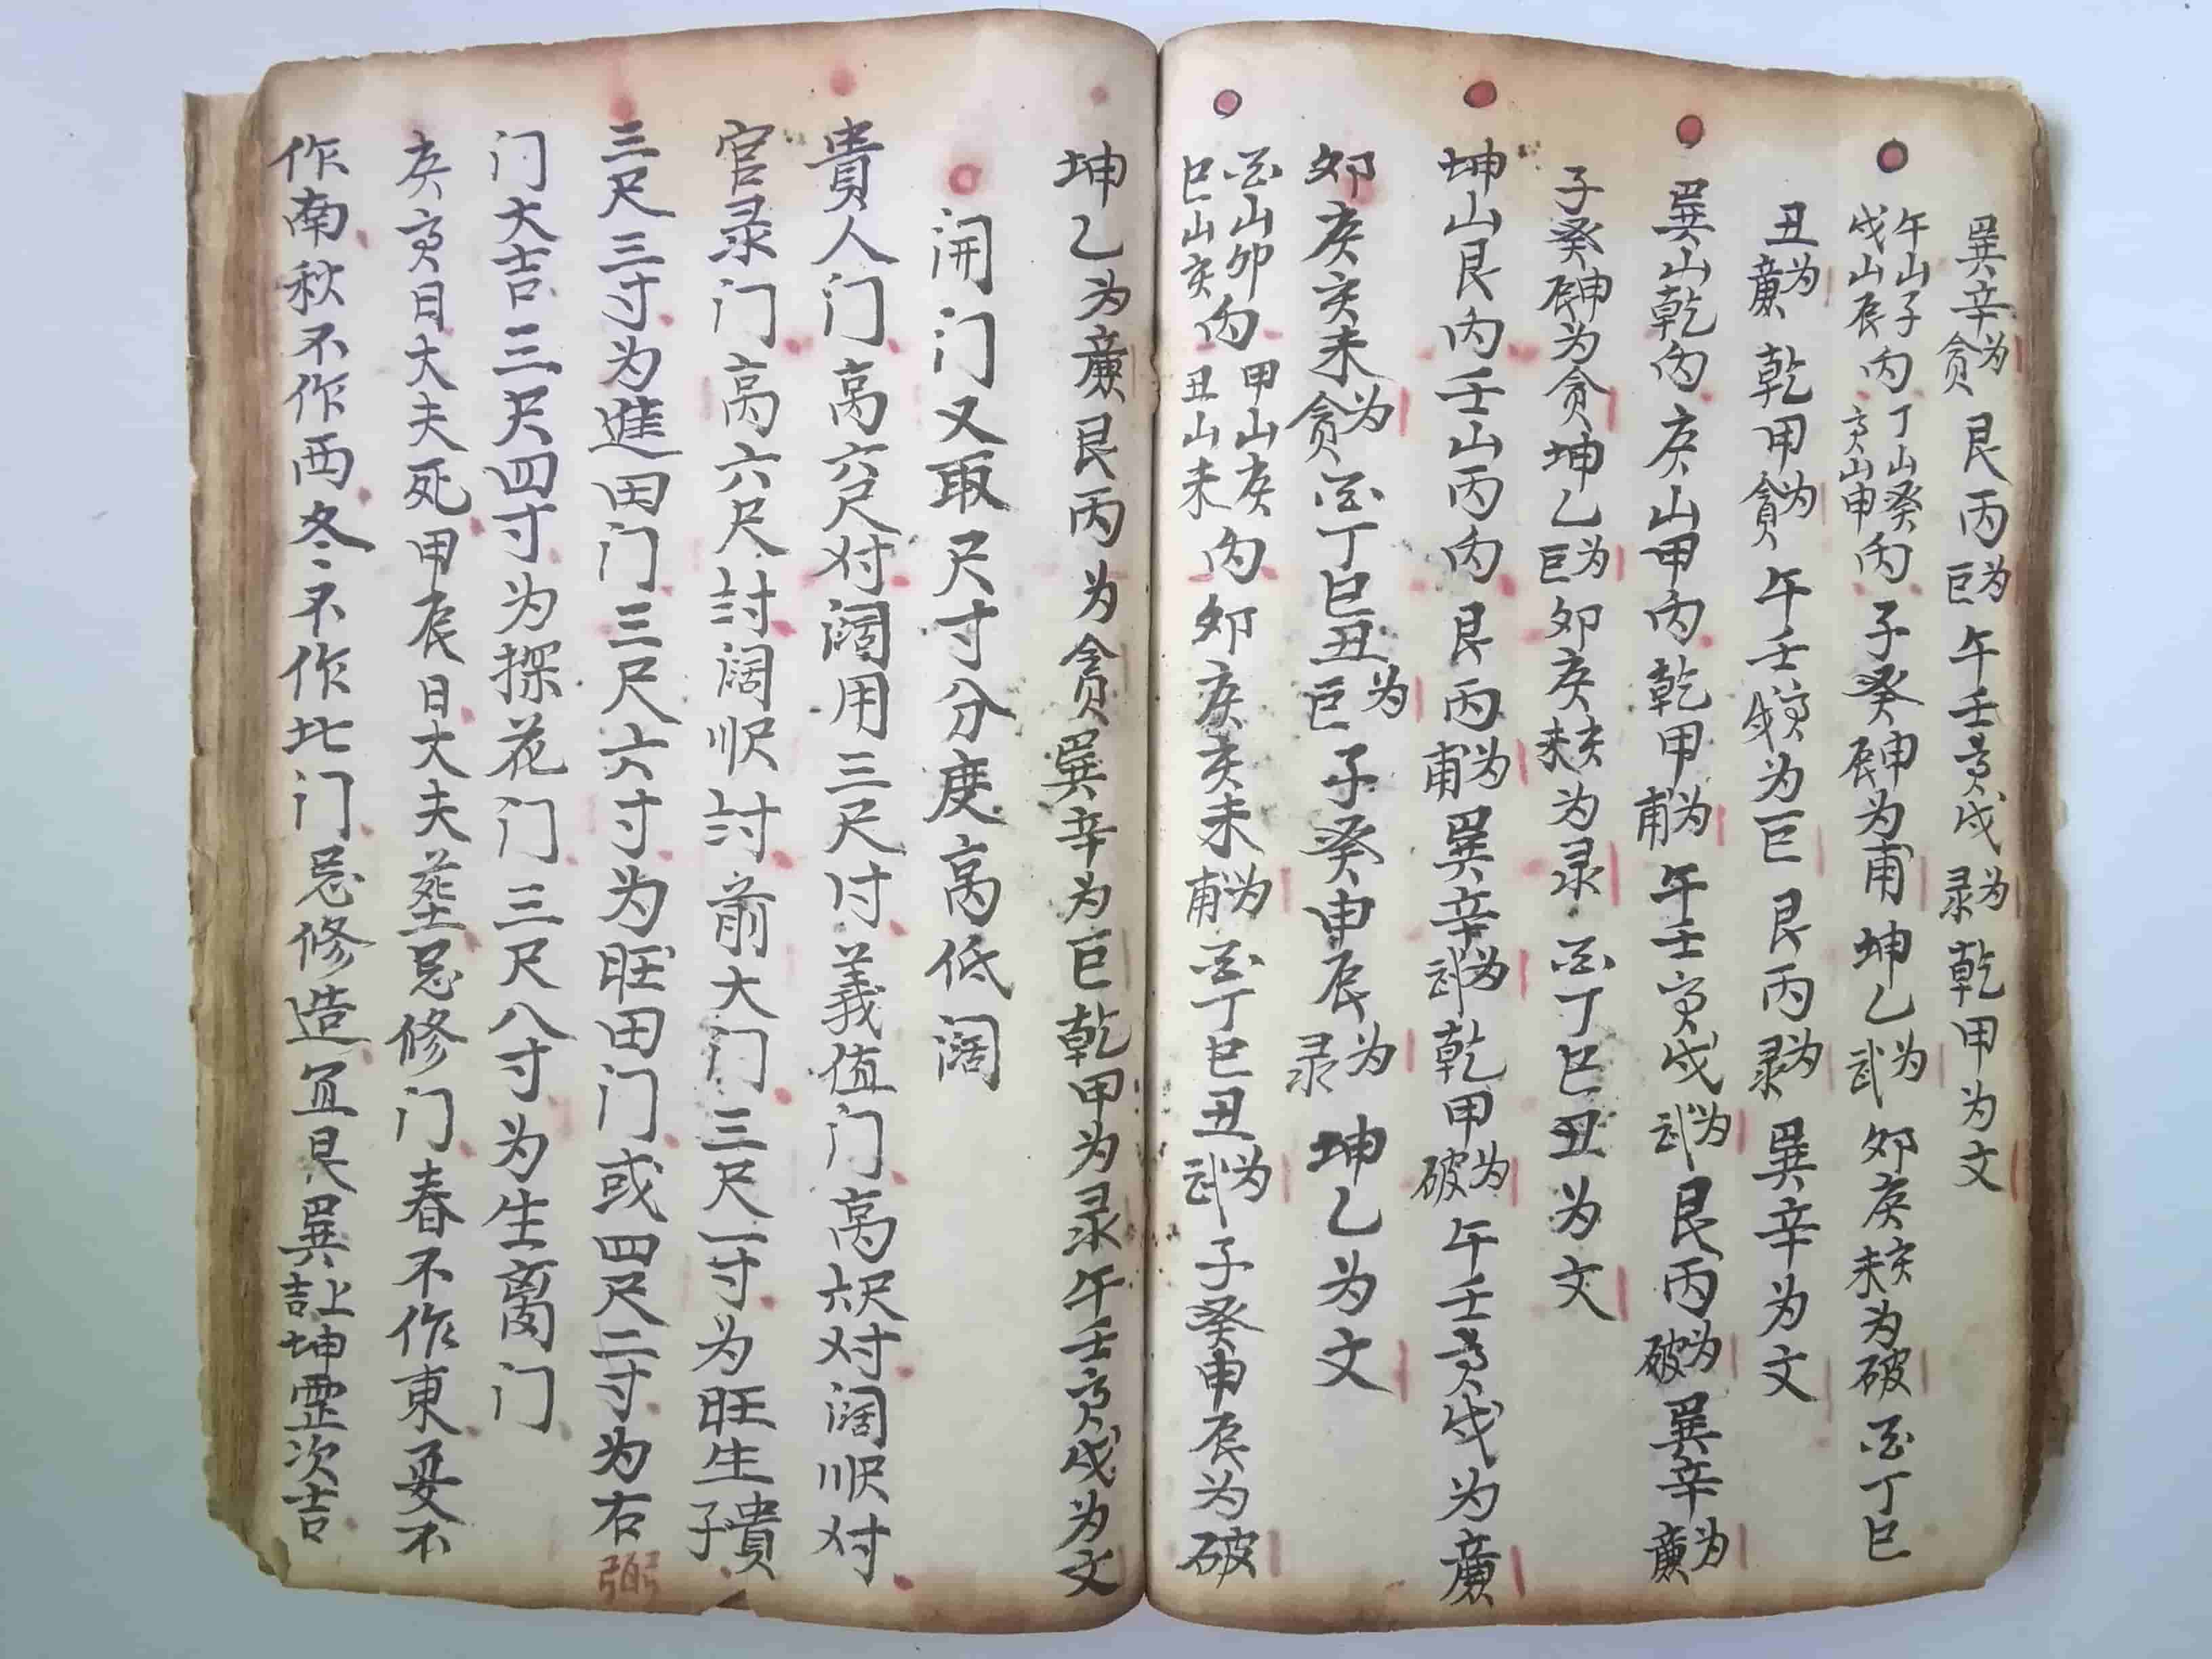 巽辛为贪艮丙为巨午壬寅戌为录乾甲为文
午山子戌山辰内丁山癸寅山申内子癸申辰为甫坤乙为武卯庚亥未为破酉丁巳
丑为廉乾甲为贪午壬寅戌为巨艮丙为录巽辛为文
巽山乾内庚山甲内乾甲为甫午壬寅戌为武艮丙为破巽辛为廉
子癸申辰为贪坤乙为巨卯庚亥未为录酉丁巳丑为文
坤山艮内壬山丙内艮丙为甫巽辛为武乾甲为破午壬寅戌为廉
卯庚亥未为贪酉丁巳丑为巨子癸申辰为录坤乙为文
酉山卯巳山亥内甲山庚丑山未内卯庚亥未为甫酉丁巳丑为武子癸申辰为破
坤乙为廉艮丙为贪巽辛为巨乾甲为录午壬寅戌为文
闭门又取尺寸分度高低阔
貴人门高六尺对阔用三尺付義值门高六尺对阔順尺对
官录门高六尺討阔順尺討前大门三尺一寸为旺生貴子
三尺三寸为進田门三尺六寸为旺田门或四尺二寸为右弼
门大吉三尺四寸为探花门三尺八寸为生离门
庚寅日大夫死甲辰日大夫葬忌修门春不作東夏不
作南秋不作西冬不作北门忌修造宜艮巽上吉坤次吉